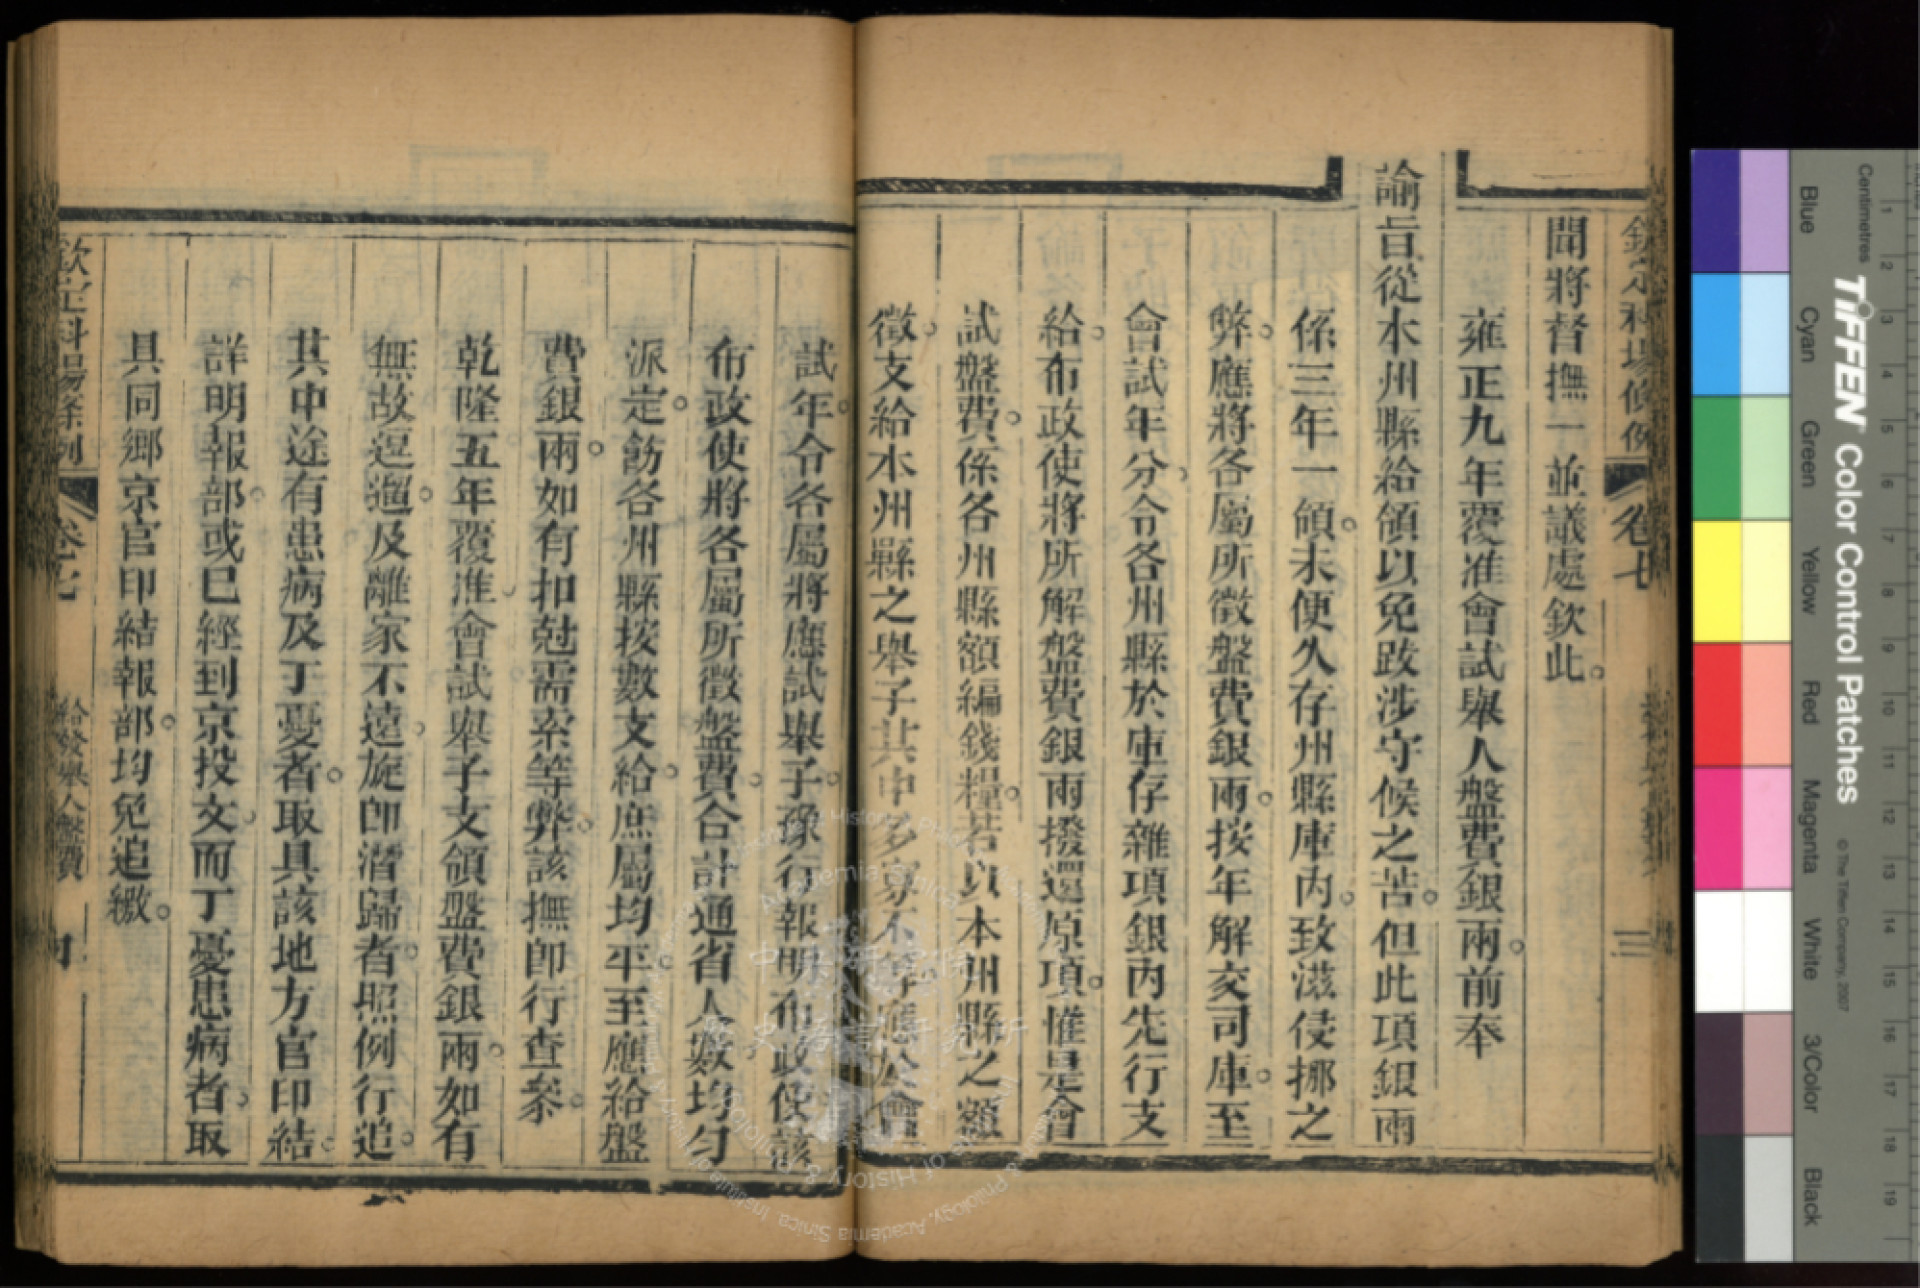 聞將督撫一並議處欽此
雍正九年覆准會試舉人盤費銀兩前奉
諭旨從本州縣給領以免跋涉守候之苦但此項銀兩
係三年一領未便久存州縣庫內致滋侵挪之
弊應將各屬所徵盤費銀兩按年解交司庫至
會試年分令各州縣於庫存雜項銀內先行支
給布政使將所解盤費銀兩撥還原項惟是會
試盤費係各州縣額編錢糧若以本州縣之額
徵支給本州縣之舉子其中多寡不等應於會
試年令各屬將應試舉子豫行報明布政使該
布政使將各屬所徵盤費合計通省人數均勻
派定飭各州縣按數支給庶屬均平至應給盤
費銀兩如有扣尅需索等弊該撫卽行查叅
乾隆五年覆准會試舉子支領盤費銀兩如有
無故逗遛及離家不遠旋卽潛歸者照例行追
其中途有患病及丁憂者取具該地方官印結
詳明報部或已經到京投文而丁憂患病者取
具同鄉京官印結報部均免追繳
欽定科場條例
卷七
給發舉人盤費
四
中央研究院
歷史語言研究所
Institute of History & Philology, Academia Sinica
TIFFEN Color Control Patches
© The Tiffen Company, 2007
Centimetres
1 2 3 4 5 6 7 8 9 10 11 12 13 14 15 16 17 18 19
Blue Cyan Green Yellow Red Magenta White 3/Color Black